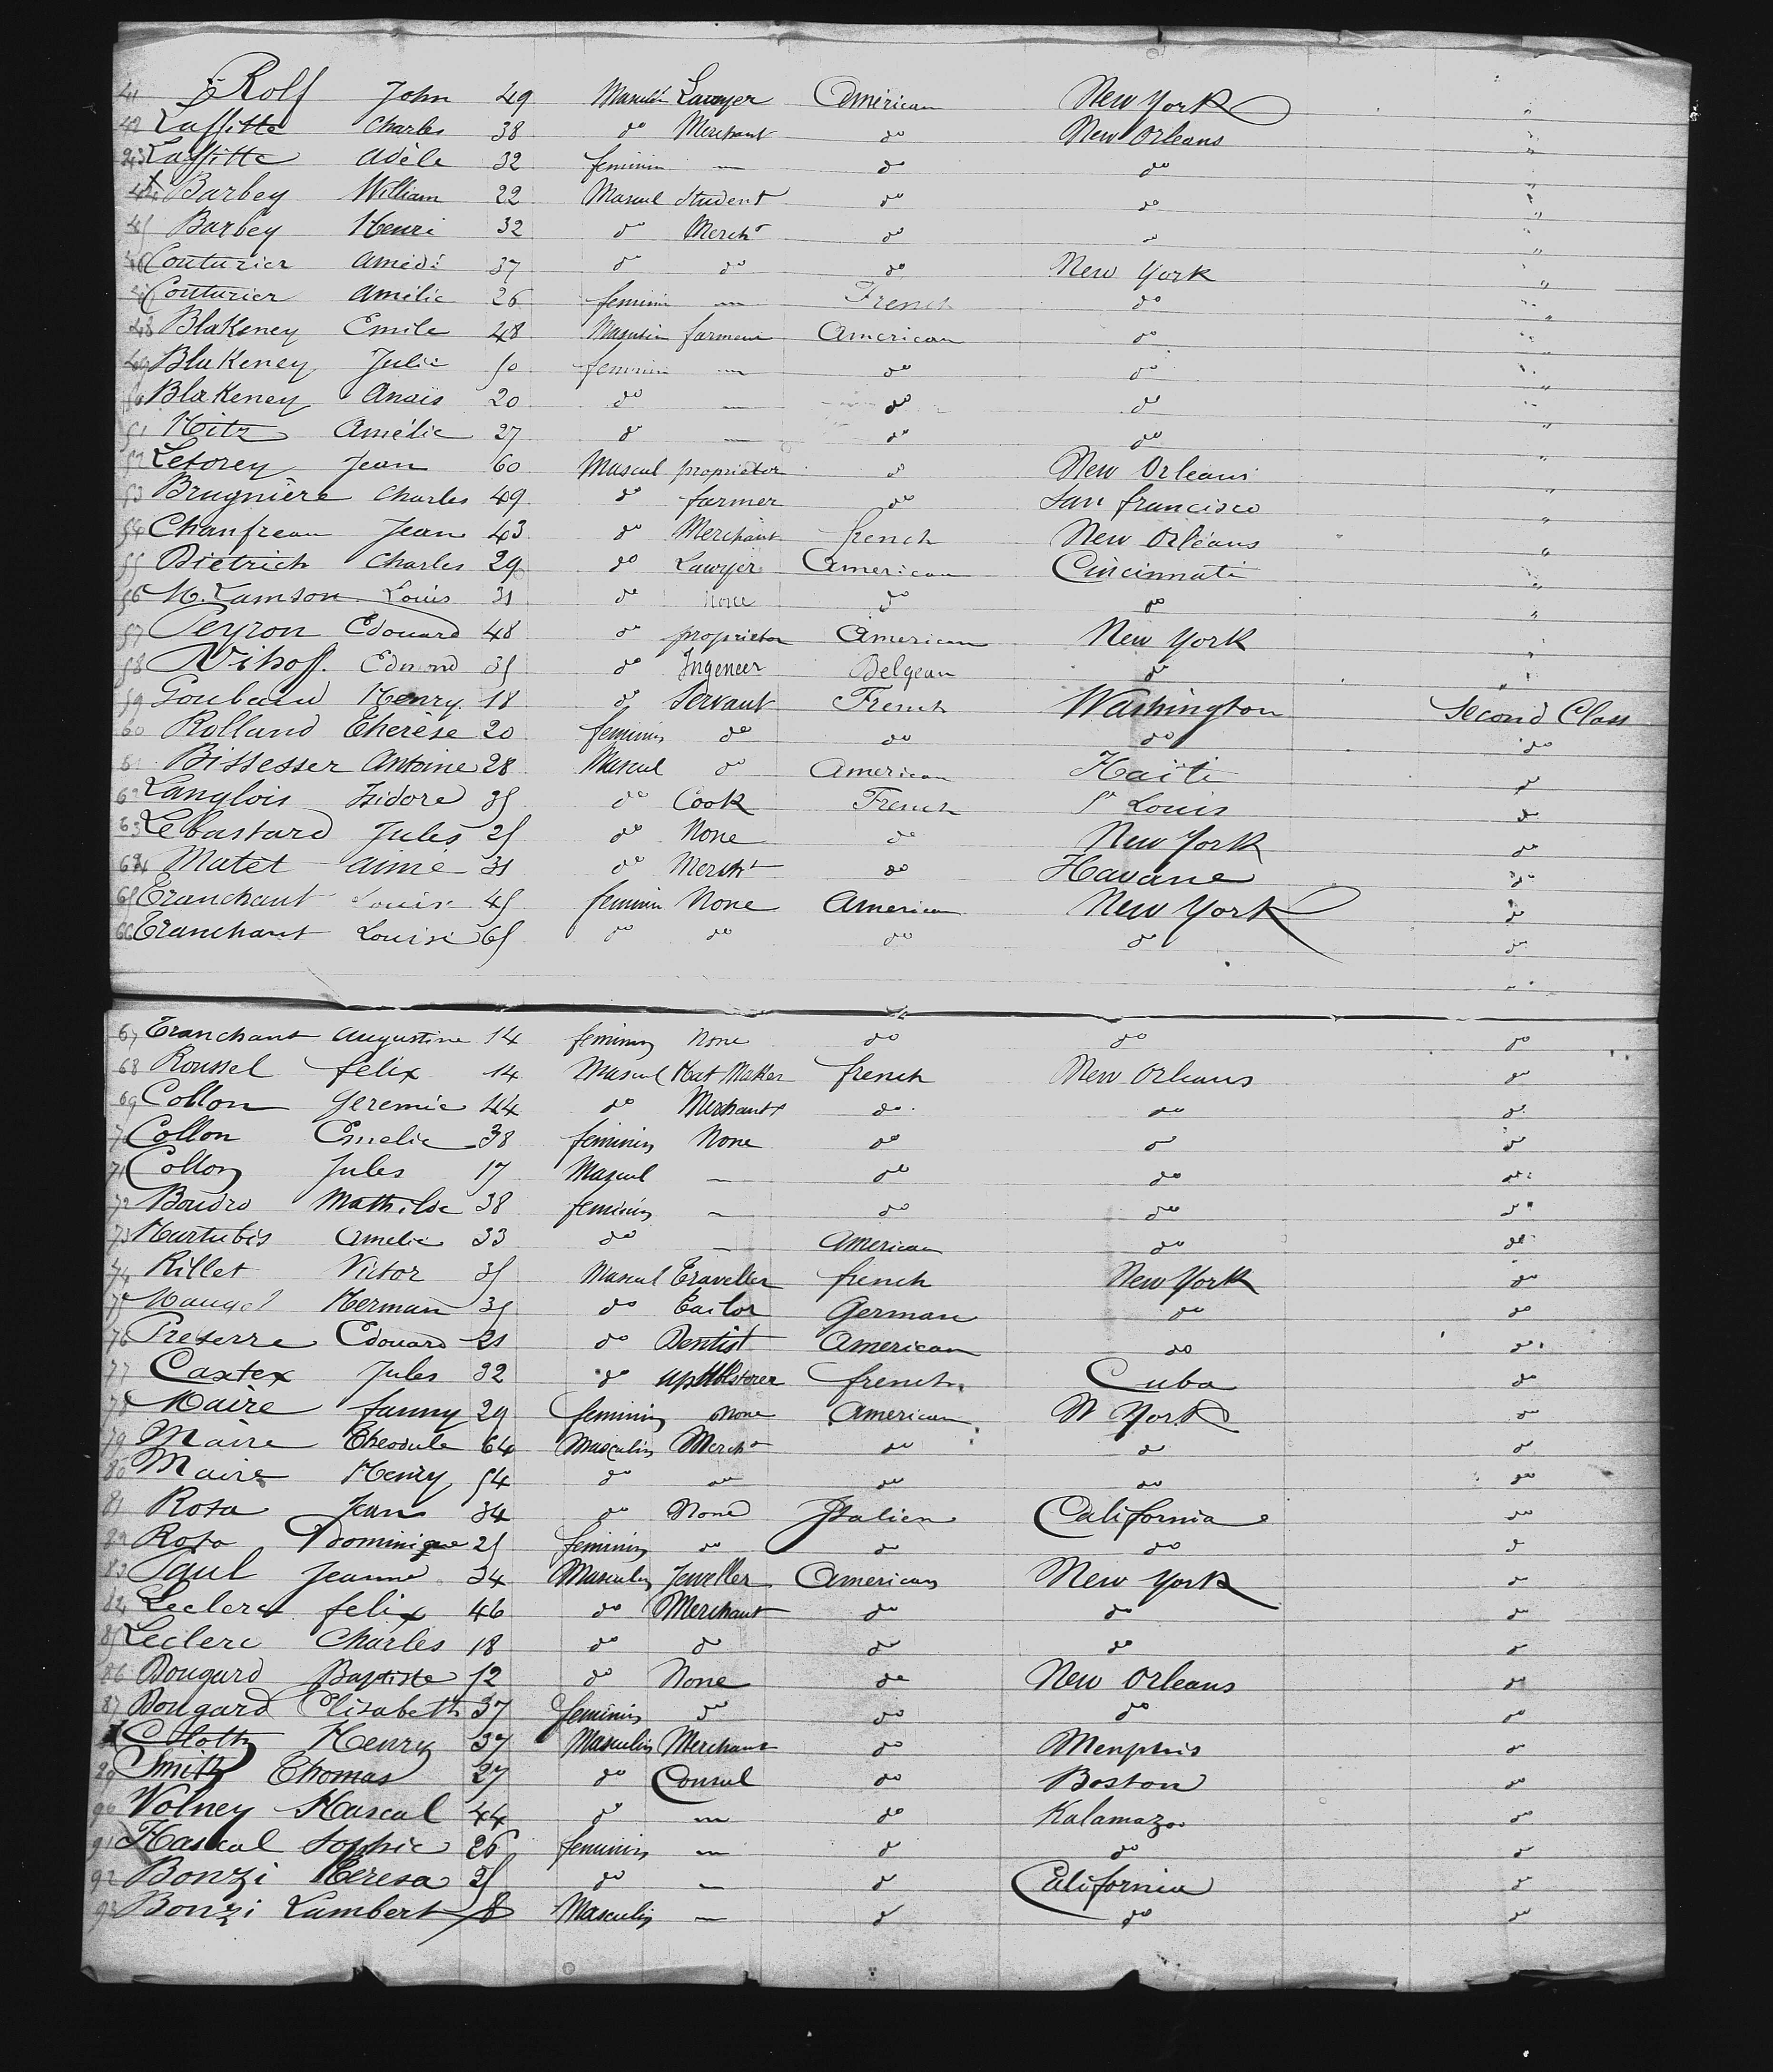 41 Rolf John 49 Masculin Lawyer American New York "
42 Laffitte Charles 38 do Merchant do New Orleans "
43 Laffitte Adèle 32 feminin — do do "
44 Barbey William 22 Mascul Student do do "
45 Barbey Henri 32 do Mercht do do "
46 Couturier Amédé 37 do do do New York "
47 Couturier Amélie 26 feminin — French do "
48 Blakeney Emile 48 Masculin farmer American do "
49 Blakeney Julie 50 feminin — do do "
50 Blakeney Anais 20 do — do do "
51 Hitz Amélie 27 do — do do "
52 Letorey Jean 60 Mascul proprietor do New Orleans "
53 Brugnière Charles 49 do farmer do San francisco "
54 Chanfreau Jean 43 do Merchant french New Orléans "
55 Dietrich Charles 29 do Lawyer American Cincinnati "
56 M. Lamson Louis 31 do None do do "
57 Peyron Edouard 48 do proprietor American New York "
58 Vihoff. Edmond 35 do Ingeneer Belgean do "
59 Goubeaud Henry 18 do Servant French Washington Second Class
60 Rolland Therèse 20 feminin do do do do
61 Bissesser Antoine 28 Mascul do American Haïti do
62 Langlois Isidore 35 do Cook French St Louis do
63 Lebastard Jules 25 do None do New York do
64 Matet aimé 31 do Mercht do Havane do
65 Tranchant Louis 45 feminin None American New York do
66 Tranchant Louise 65 do do do do do
67 Tranchant Augustine 14 feminin None do do do
68 Roussel félix 14 Mascul Hat Maker french New Orleans do
69 Collon Geremie 44 do Merchant do do do
70 Collon Emelie 38 feminin None do do do
71 Collon Jules 17 Mascul — do do do
72 Boudro Mathilde 38 feminin — do do do
73 Hurtubis Amelie 33 do — American do do
74 Rillet Victor 35 Mascul Traveller french New York do
75 Herman 35 do Tailor German do do
76 Preterre Edouard 21 do Dentist American do do
77 Castex Jules 32 do upholsterer french Cuba do
78 Maire fanny 29 feminin none American N York do
79 Maire Theodule 64 Masculin Mercht do do do
80 Maire Henry 54 do do do do do
81 Rosa Jean 34 do None Italien California do
82 Rosa Dominique 25 feminin do do do do
83 Paul Jeanne 34 Masculin Jeweller American New York do
84 Leclerc felix 46 do Merchant do do do
85 Leclerc Charles 18 do do do do do
86 Dougard Baptiste 12 do None do New Orleans do
87 Dougard Elizabeth 37 feminin do do do do
Clotty Henry 37 Masculin Merchant do Menphis do
89 Smith Thomas 27 do Consul do Boston do
90 Volney Hascal 44 do — do Kalamazoo do
91 Hascal Sophie 26 feminin — do do do
92 Bonzi Teresa 25 do — do California do
93 Bonzi Lambert 8 Masculin — do do do